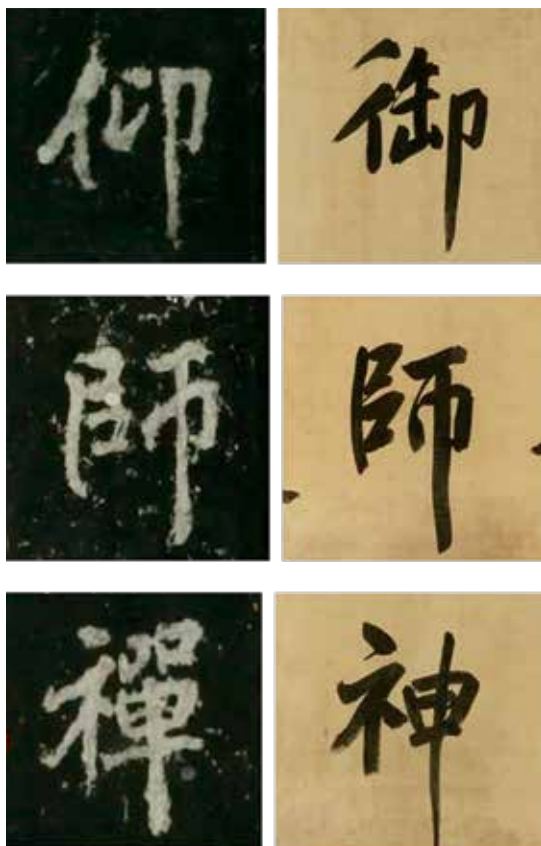 仰 御
師 師
禪 神